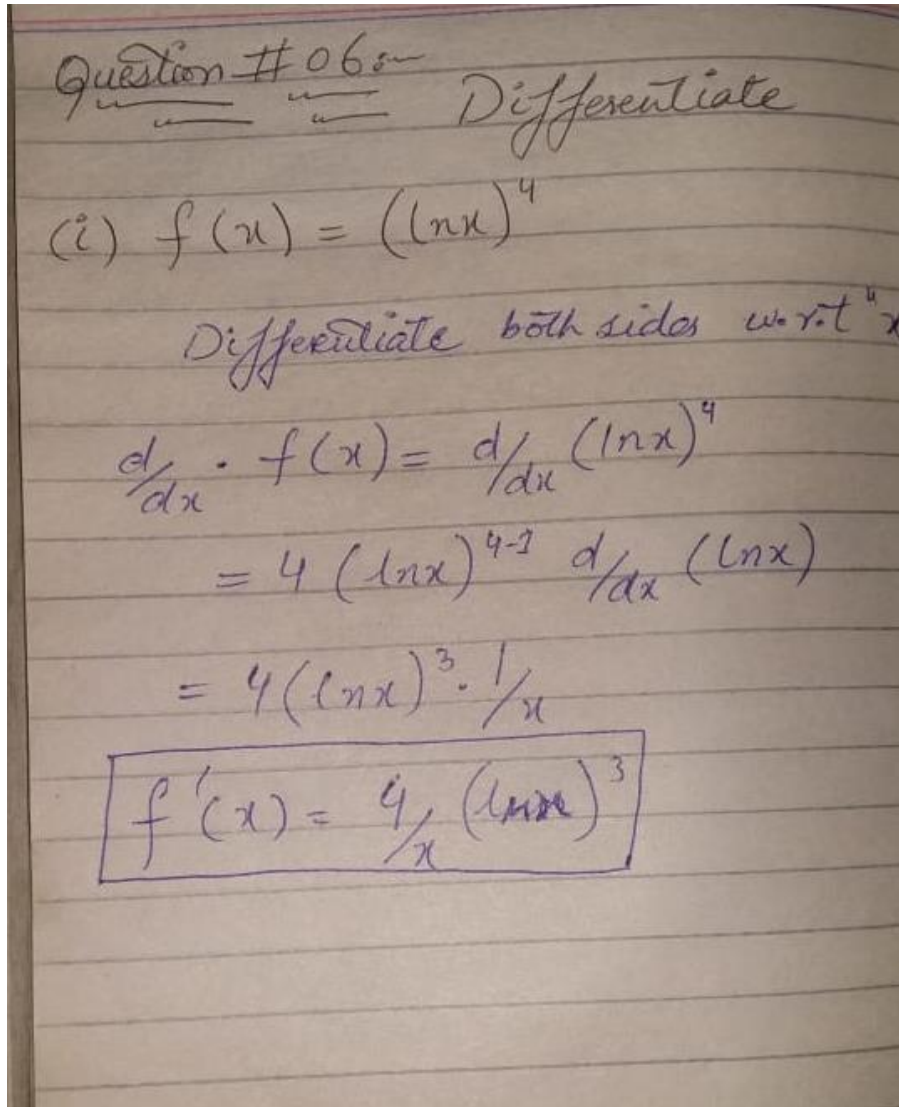 Question # 06:-
Differentiate
(i) f(x) = (lnx)^4
Differentiate both sides w.r.t "x
d/dx · f(x) = d/dx (lnx)^4
= 4 (lnx)^4-1 d/dx (lnx)
= 4(lnx)^3 · 1/x
f'(x) = 4/x (lnx)^3